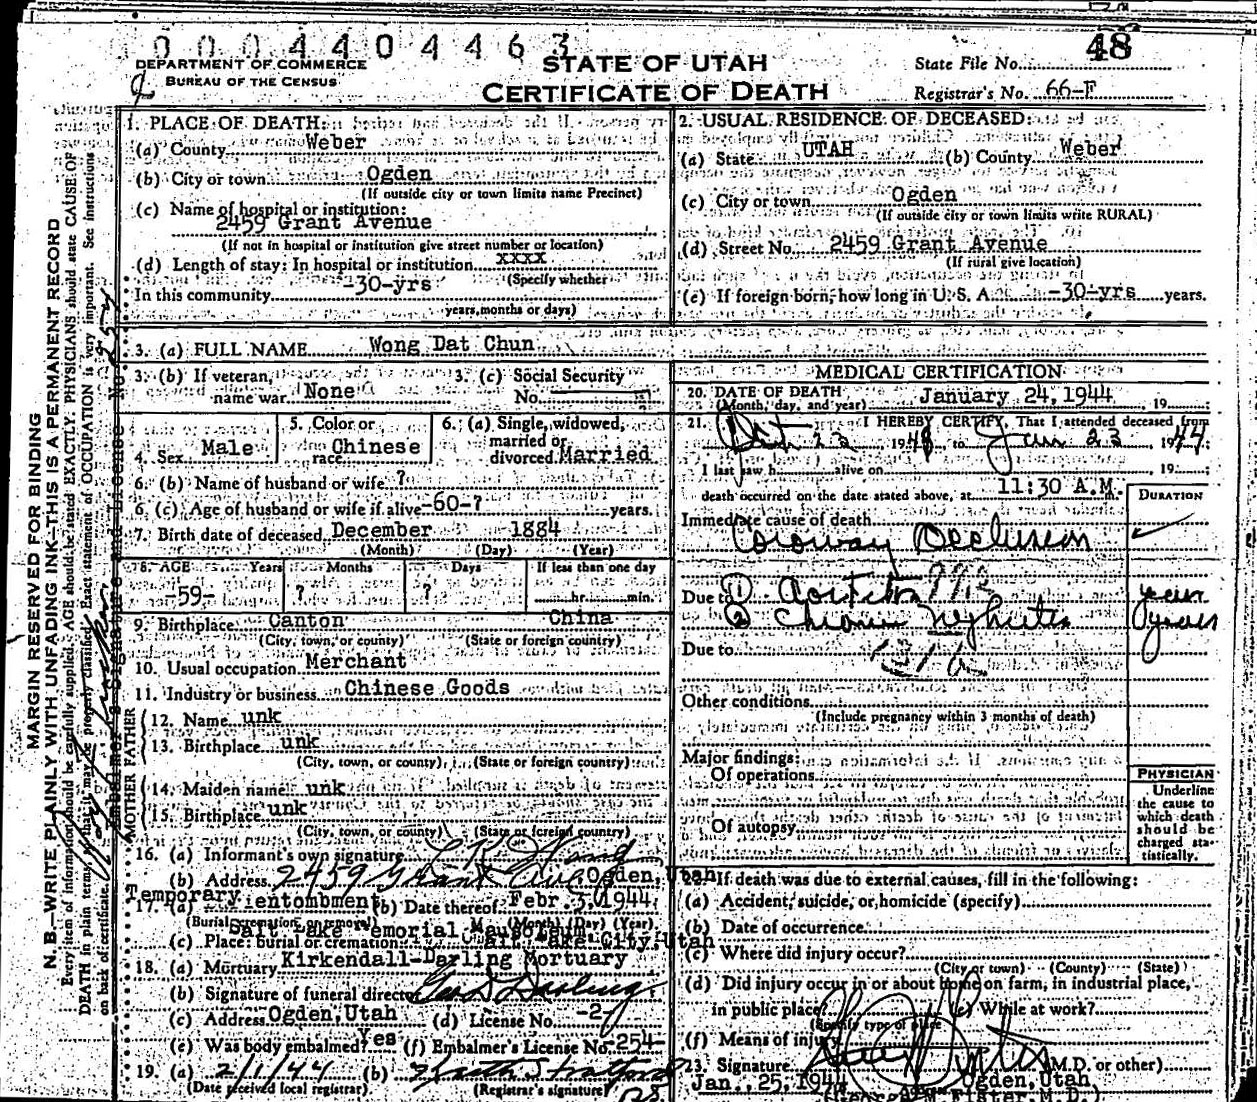 0 0 0 4 4 0 4 4 6 3
48
DEPARTMENT OF COMMERCE
BUREAU OF THE CENSUS
STATE OF UTAH
CERTIFICATE OF DEATH
State File No.
Registrar's No. 66-F
MARGIN RESERVED FOR BINDING
N. B.—WRITE PLAINLY WITH UNFADING INK—THIS IS A PERMANENT RECORD
Every item of information should be carefully supplied. AGE should be stated EXACTLY. PHYSICIANS should state CAUSE OF
DEATH in plain terms, so that it may be properly classified. Exact statement of OCCUPATION is very important. See instructions
on back of certificate.
1. PLACE OF DEATH:
(a) County Weber
(b) City or town Ogden
(If outside city or town limits name Precinct)
(c) Name of hospital or institution:
2459 Grant Avenue
(If not in hospital or institution give street number or location)
(d) Length of stay: In hospital or institution xxxx
(Specify whether
In this community -30-yrs
years, months or days)
2. USUAL RESIDENCE OF DECEASED:
(a) State UTAH (b) County Weber
(c) City or town Ogden
(If outside city or town limits write RURAL)
(d) Street No. 2459 Grant Avenue
(If rural give location)
(e) If foreign born, how long in U. S. A. -30-yrs years.
3. (a) FULL NAME Wong Dat Chun
3. (b) If veteran, name war None
3. (c) Social Security No.
4. Sex Male
5. Color or race Chinese
6. (a) Single, widowed, married or divorced Married
6. (b) Name of husband or wife ?
6. (c) Age of husband or wife if alive -60-? years.
7. Birth date of deceased December 1884
(Month) (Day) (Year)
8. AGE Years Months Days If less than one day
-59- ? ? hr. min.
9. Birthplace Canton China
(City, town, or county) (State or foreign country)
10. Usual occupation Merchant
11. Industry or business Chinese Goods
FATHER
12. Name unk
13. Birthplace unk
(City, town, or county) (State or foreign country)
MOTHER
14. Maiden name unk
15. Birthplace unk
(City, town, or county) (State or foreign country)
16. (a) Informant's own signature
(b) Address 2459 Grant Ave Ogden, Utah
17. (a) Temporary entombment (b) Date thereof Febr. 3, 1944
(Burial, cremation or removal) (Month) (Day) (Year)
(c) Place: burial or cremation Salt Lake Memorial Mausoleum Salt Lake City, Utah
18. (a) Mortuary Kirkendall-Darling Mortuary
(b) Signature of funeral director Geo D Darling
(c) Address Ogden, Utah (d) License No. -2-
(e) Was body embalmed? Yes (f) Embalmer's License No. -254-
19. (a) 2/1/44 (b)
(Date received local registrar) (Registrar's signature)
MEDICAL CERTIFICATION
20. DATE OF DEATH January 24, 1944 19
(Month, day, and year)
21. I HEREBY CERTIFY, That I attended deceased from
23 to Jan 23 1944
I last saw h alive on 19
death occurred on the date stated above, at 11:30 A.M.
DURATION
Immediate cause of death
Coronary Occlusion
Due to 1
2 Chronic Nephritis years
Due to 131b
Other conditions
(Include pregnancy within 3 months of death)
Major findings:
Of operations
Of autopsy
PHYSICIAN
Underline
the cause to
which death
should be
charged sta-
tistically.
22. If death was due to external causes, fill in the following:
(a) Accident, suicide, or homicide (specify)
(b) Date of occurrence
(c) Where did injury occur?
(City or town) (County) (State)
(d) Did injury occur in or about home on farm, in industrial place,
in public place (e) While at work?
(Specify type of place
(f) Means of injury
23. Signature (M.D. or other)
Jan., 25, 1944 Ogden, Utah
(George M. Fister, M.D.)